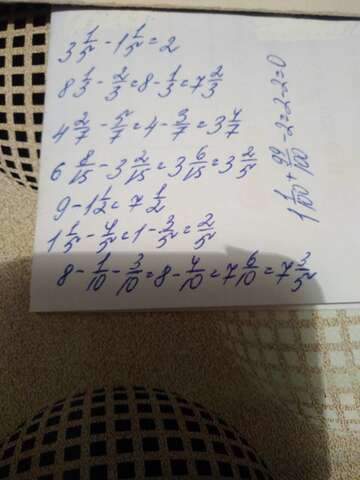 3 1/5 - 1 1/5 = 2
8 1/3 - 2/3 = 8 - 1/3 = 7 2/3
4 2/7 - 5/7 = 4 - 3/7 = 3 4/7
6 8/15 - 3 2/15 = 3 6/15 = 3 2/5
9 - 1 1/2 = 7 1/2
1 1/5 - 4/5 = 1 - 3/5 = 2/5
8 - 1/10 - 3/10 = 8 - 4/10 = 7 6/10 = 7 3/5
1 1/100 + 99/100 - 2 = 2 - 2 = 0